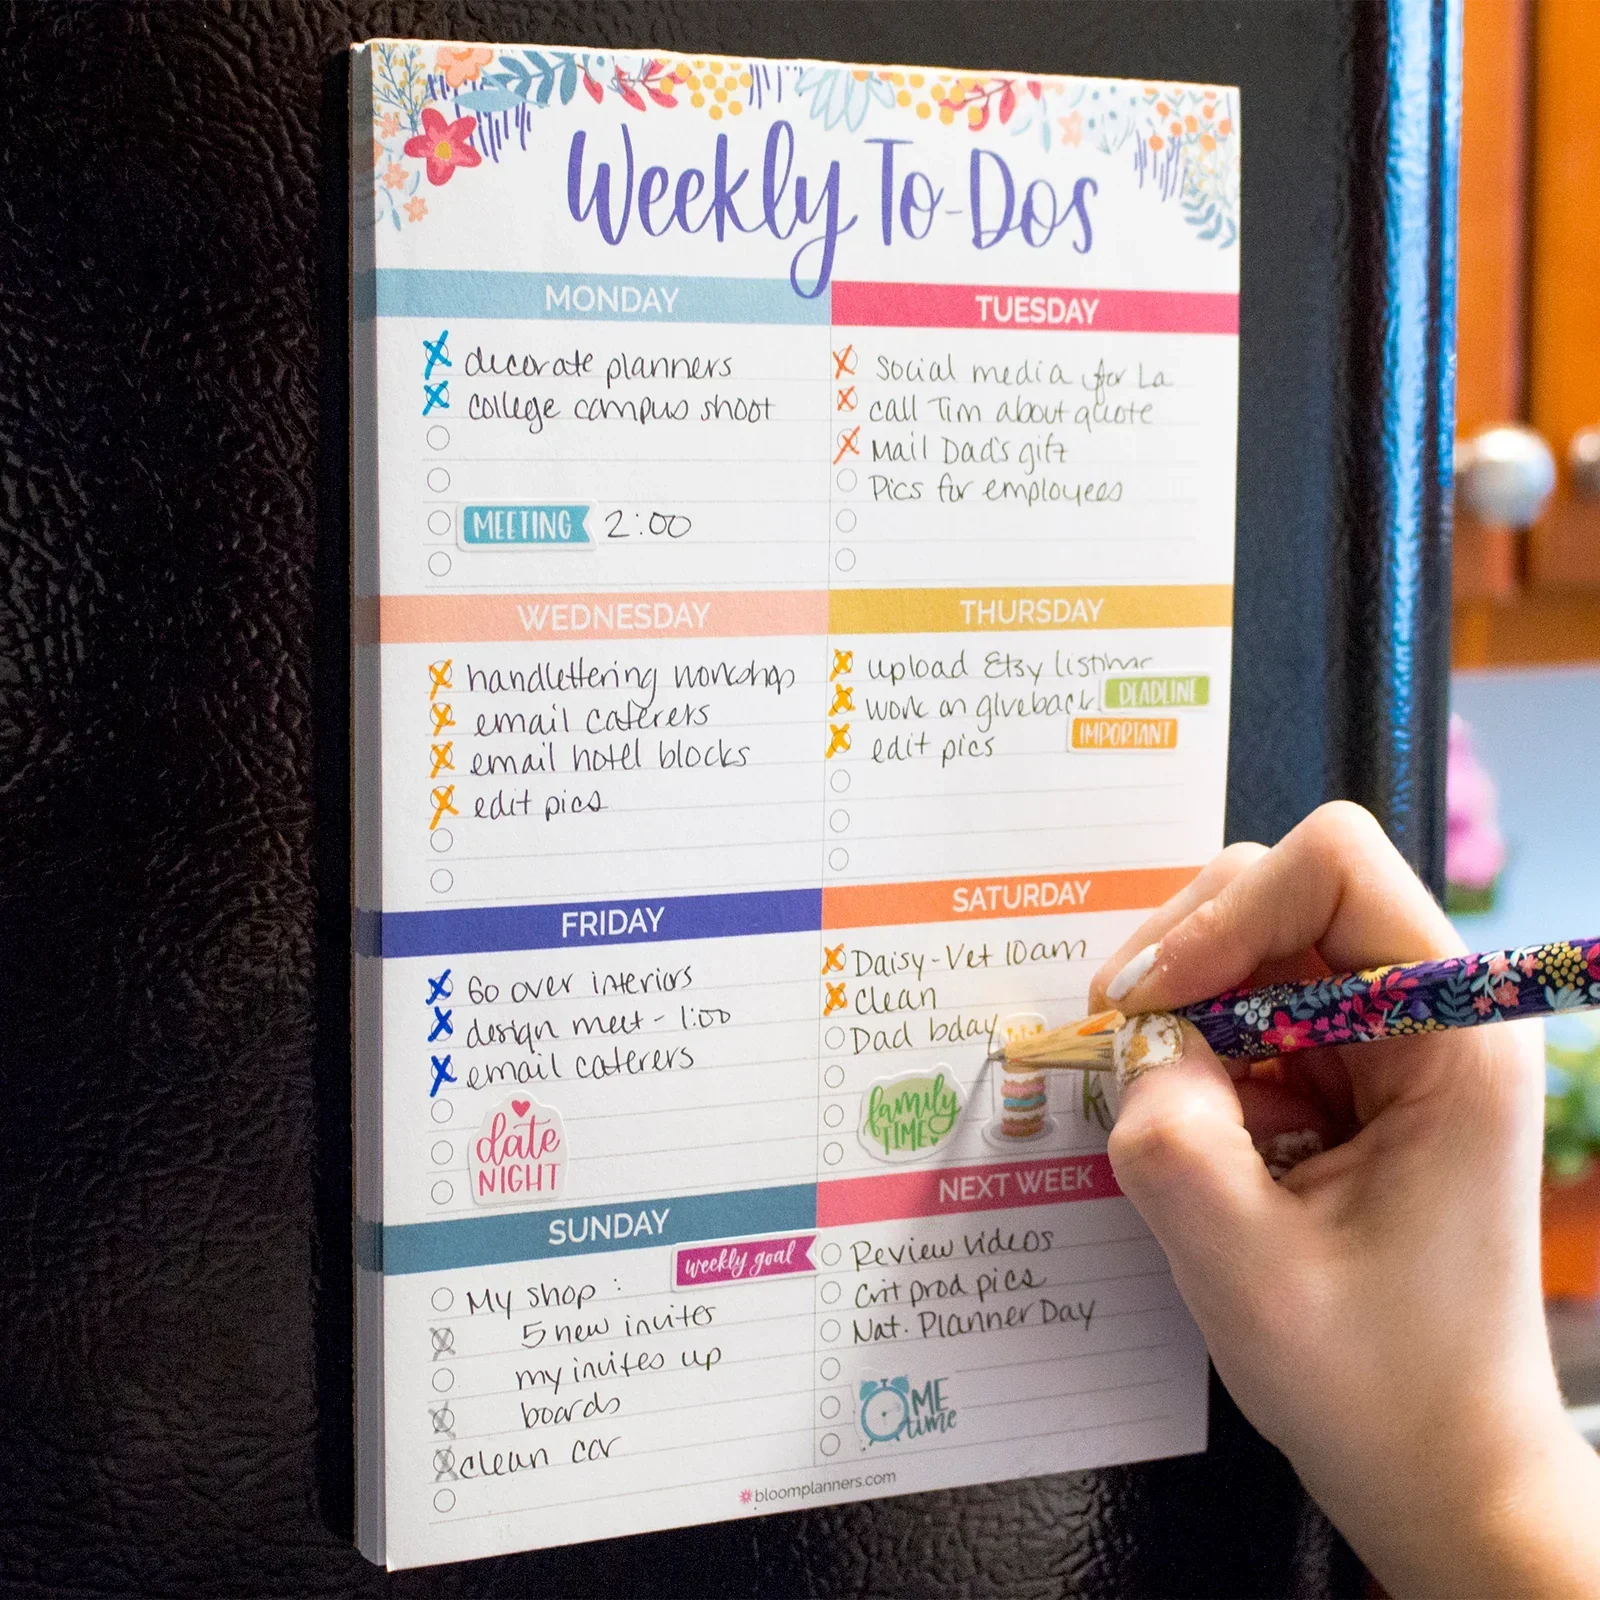 Weekly To-Dos
MONDAY
decorate planners
college campus shoot
MEETING 2:00
TUESDAY
Social media for La
call Tim about quote
Mail Dad's gift
Pics for employees
WEDNESDAY
handlettering workshop
email caterers
email hotel blocks
edit pics
THURSDAY
upload Etsy listing
work on giveback DEADLINE
edit pics IMPORTANT
FRIDAY
Go over interiors
design meet - 1:00
email caterers
date
NIGHT
SATURDAY
Daisy-Vet 10am
clean
Dad bday
family
TIME
SUNDAY
weekly goal
My shop :
5 new invites
my invites up
boards
clean car
NEXT WEEK
Review videos
Crit prod pics
Nat. Planner Day
ME
time
bloomplanners.com